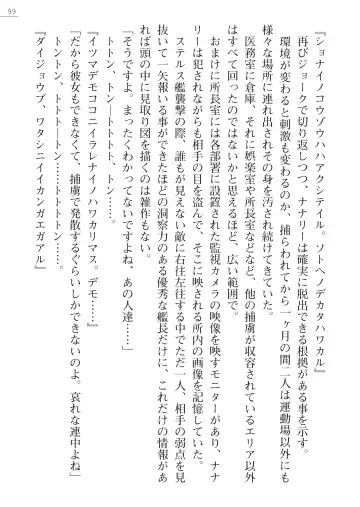 99
『ショナイノコウゾウハハアクシテイル。ソトヘノデカタハワカル』
再びジョークで切り返しつつ、ナナリーは確実に脱出できる根拠がある事を示す。
環境が変わると刺激も変わるのか、捕らわれてから一ヶ月の間二人は運動場以外にも
様々な場所に連れ出されその身を汚され続けてきていた。
医務室に倉庫、それに娯楽室や所長室などなど、他の捕虜が収容されているエリア以外
はすべて回ったのではないかと思えるほど、広い範囲で。
おまけに所長室には各部署に設置された監視カメラの映像を映すモニターがあり、ナナ
リーは犯されながらも相手の目を盗んで、そこに映される所内の画像を記憶していた。
ステルス艦襲撃の際、誰もが見えない敵に右往左往する中でただ一人、相手の弱点を見
抜いて一矢報いる事ができたほどの洞察力のある優秀な艦長だけに、これだけの情報があ
れば頭の中に見取り図を描くのは雑作もない。
「そうですよ。まったくわかってないですよね、あの人達……」
トトン、トン―トトトト、トン……
『イツマデモココニイラレナイノハワカリマス。デモ……』
「だから彼女もできなくて、捕虜で発散するぐらいしかできないのよ。哀れな連中よね」
トントン、トトトトン……トトトトン……
『ダイジョウブ、ワタシニイイカンガエガアル』